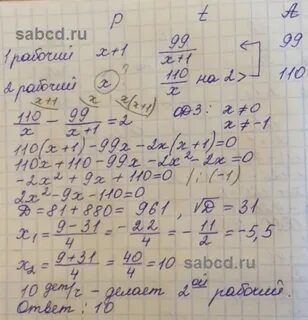 sabcd.ru
p t A
1 рабочий x+1 99/(x+1) 99
2 рабочий x ? 110/x на 2> 110
x+1 x x(x+1)
110/x - 99/(x+1) = 2 ОДЗ: x≠0
x≠-1
110(x+1)-99x-2x(x+1)=0
110x+110-99x-2x²-2x=0
-2x²+9x+110=0 |:(-1)
2x²-9x-110=0
D=81+880=961, √D=31
x₁=(9-31)/4=-22/4=-11/2=-5,5
x₂=(9+31)/4=40/4=10 sabcd.ru
10 дет/ч - делает 2ой рабочий.
Ответ: 10